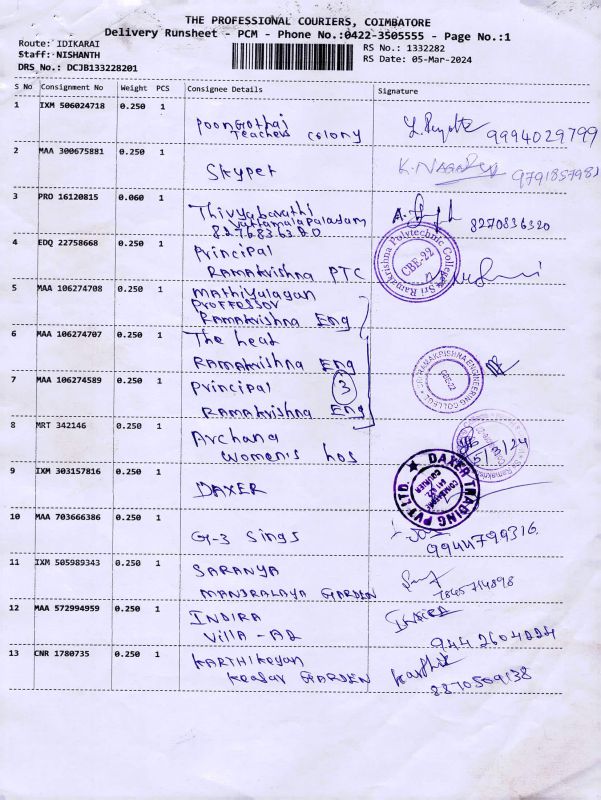 THE PROFESSIONAL COURIERS, COIMBATORE
Delivery Runsheet - PCM - Phone No.:0422-3505555 - Page No.:1
Route: IDIKARAI
Staff: NISHANTH
DRS No.: DCJB133228201
RS No.: 1332282
RS Date: 05-Mar-2024
S No Consignment No Weight PCS Consignee Details Signature
1 IXM 506024718 0.250 1 Poongothai
Teachers colony 9994029799
2 MAA 300675881 0.250 1 Skypet K. 
3 PRO 16120815 0.060 1 Thivyabarathi
8270836320
4 EDQ 22758668 0.250 1 Principal
Ramakrishna PTC
Sri Ramakrishna Polytechnic College
CBE-22
5 MAA 106274708 0.250 1 Mathiyalagan
Proffessor
Ramakrishna Eng
6 MAA 106274707 0.250 1 The head
Ramakrishna Eng
7 MAA 106274589 0.250 1 Principal 3
Ramakrishna Eng
CBE-22
8 MRT 342146 0.250 1 Archana
Women's hos
5/3/24
9 IXM 303157816 0.250 1 DAXER
DAXER TRADING PVT LTD.
COIMBATORE
641 022
10 MAA 703666386 0.250 1 G-3 Sings
9944799316
11 IXM 505989343 0.250 1 SARANYA
GARDEN
12 MAA 572994959 0.250 1 INDIRA
Villa - A2
13 CNR 1780735 0.250 1 KARTHIKeyan
Keasar GARDEN
Karthik
8870509138